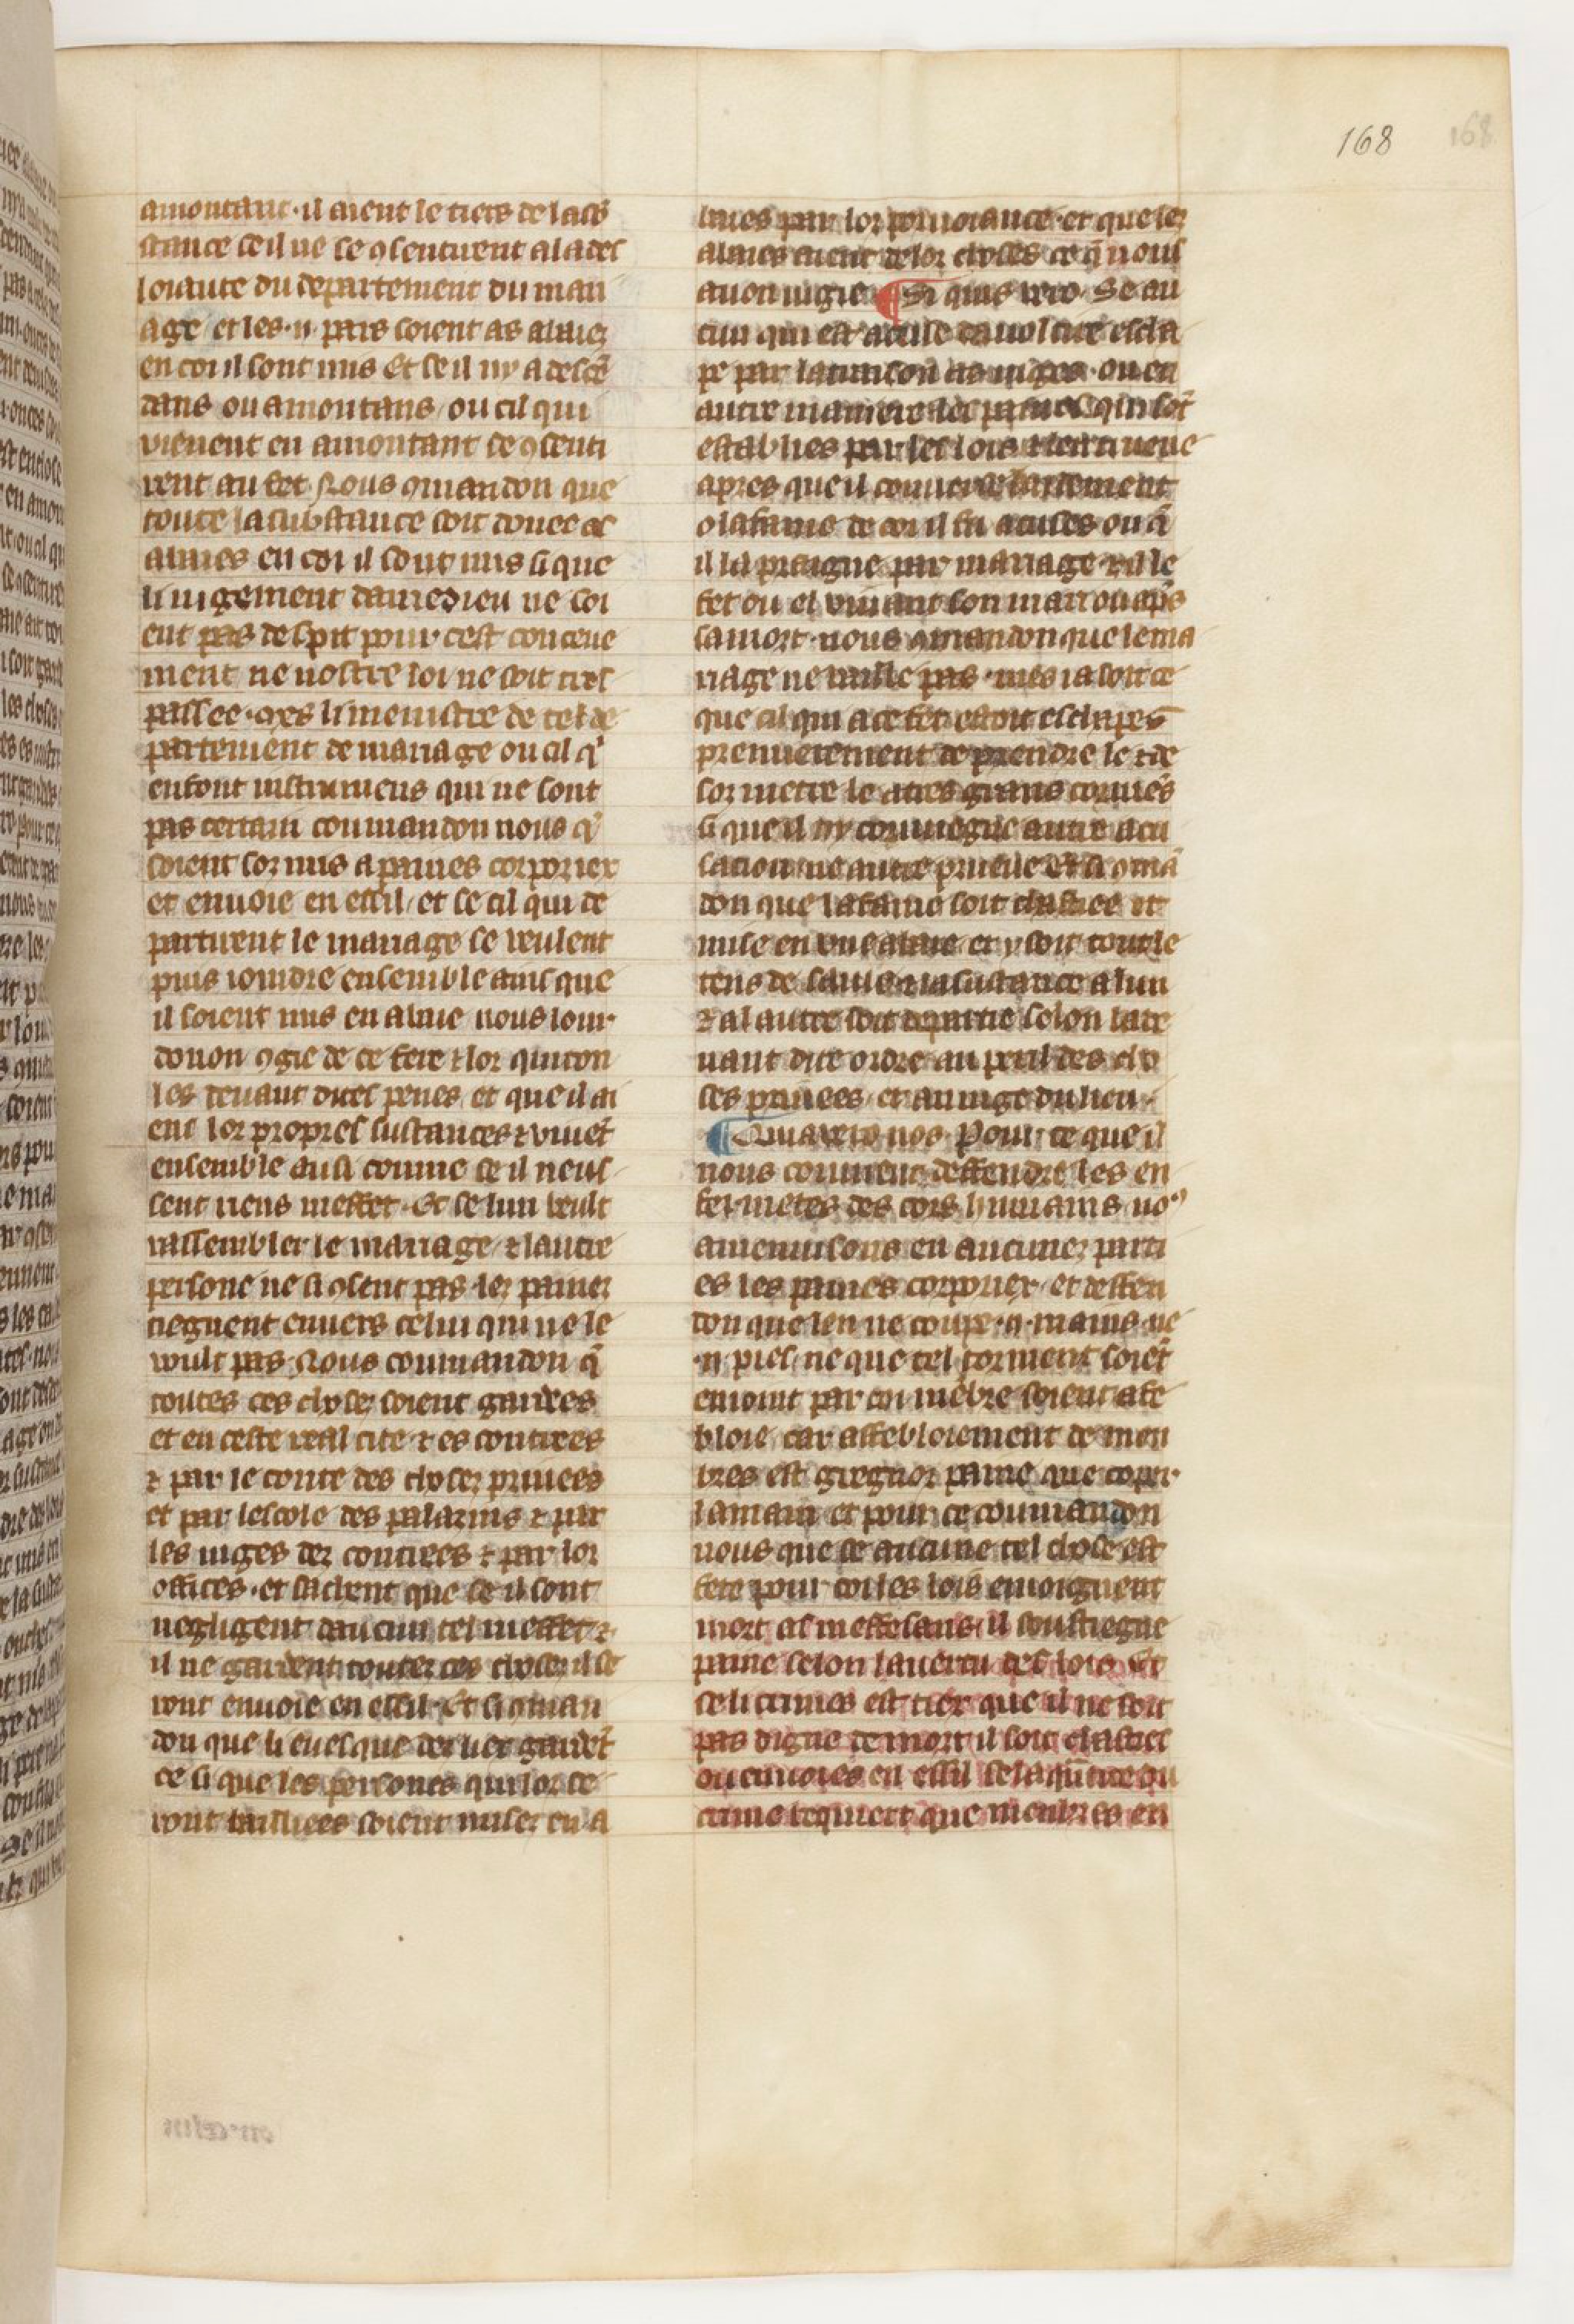 168
amontant · il aient le tiers de la cōs
stance se il ne se ꝯsentirent a la des
loiaute du departement du mari
age et les · ii · pars soient as abaies
en coi il sont mis Et se il ni a descē
dans ou amontans / ou cil qui
vienent en amontant se ꝯsenti
rent au fet Nous ꝯmandon que
toute la substance soit donee as
abaies en coi il sont mis si que
li iugement damedieu ne soi
ent pas despit pour cest contene
ment ne nostre loi ne soit tres
passee · Mes li menistre de tel de
partement de mariage ou cil q̇
en font instrumens qui ne sont
pas certain commandon nous q̇
soient sormis a paines corporiex
et envoie en essil / et se cil qui de
partirent le mariage se veulent
puis ioindre ensemble ains que
il soient mis en abaie nous lour
donon ꝯgie de ce fere ⁊ lor quiton
les devant dites penes et que il ai
ent lor propres sustances ⁊ vivēt
ensemble ausi comme se il neus
sent riens meffet · Et se lun veult
rassembler le mariage ⁊ lautre
persone ne si ꝯsent pas les paines
tiegnent envers celui qui ne le
wult pas Nous commandon q̄
toutes ces choses soient gardees
et en ceste real cite ⁊ es contrees
⁊ par le conte des choses privees
et par lescole des palazins ⁊ par
les iuges des contrees ⁊ par lor
offices · et sachent que se il sont
negligent daucun tel meffet ⁊
il ne gardent toutes ces choses il se
ront envoie en essil Et si ꝯman
don que li evesque des liex gardēt
ce si que les persones qui lor se
ront bailliees soient mises en a
baies par lor porvoiance · et que les
abaies aient de lor choses ce q̄ nous
avon iugie ¶ Si quis vero Se au
cun qui est acuse davoltire escha
pe par la traison as iuges · ou en
autre maniere les paines qui sōt
establies par les lois ⁊ len trueve
apres que il converse laidement
o la fame de coi il fu acuses ou q̄
il la preigne par mariage ⁊ il le
fet ou el vivant son mari ou apͥs
sa mort · nous ꝯmandon que le ma
riage ne vaille pas · mes ia soit ce
que cil qui a ce fet estoit eschapes
premierement de prendre le ⁊ de
sormetre le a tres grans tormēs
si que il ni coviegne autre acu
sation ne autre prueve Et si ꝯmā
don que la fame soit chastiee et
mise en une abaie et y soit tout le
tens de sa vie ⁊ la sustance a lun
⁊ a lautre soit departie selon la de
vant dite ordre au peril des cho
ses privees · et au iuge du lieu ·
¶ Quia vero nos Pour ce que il
nous covient deffendre les en
fermetes des cors humains noꝰ
amenuisons en aucunes parti
es les paines corporiex · et deffen
don que len ne coupe · ii · mains ne
· ii · pies / ne que tel torment soiēt
enioint par coi mēbre soient afe
bloie / car affebloiement de men
bres est gregnor paine que coper
la main et pour ce commandon
nous que se aucune tel chose est
fete pour coi les lois enioignent
mort as meffesans il soustiegne
paine selon la vertu des lois Et
se li crimes est tiex que il ne soit
pas digne de mort il soit chasties
ou envoies en essil se la q̄ntite du
crime requiert que menbres en